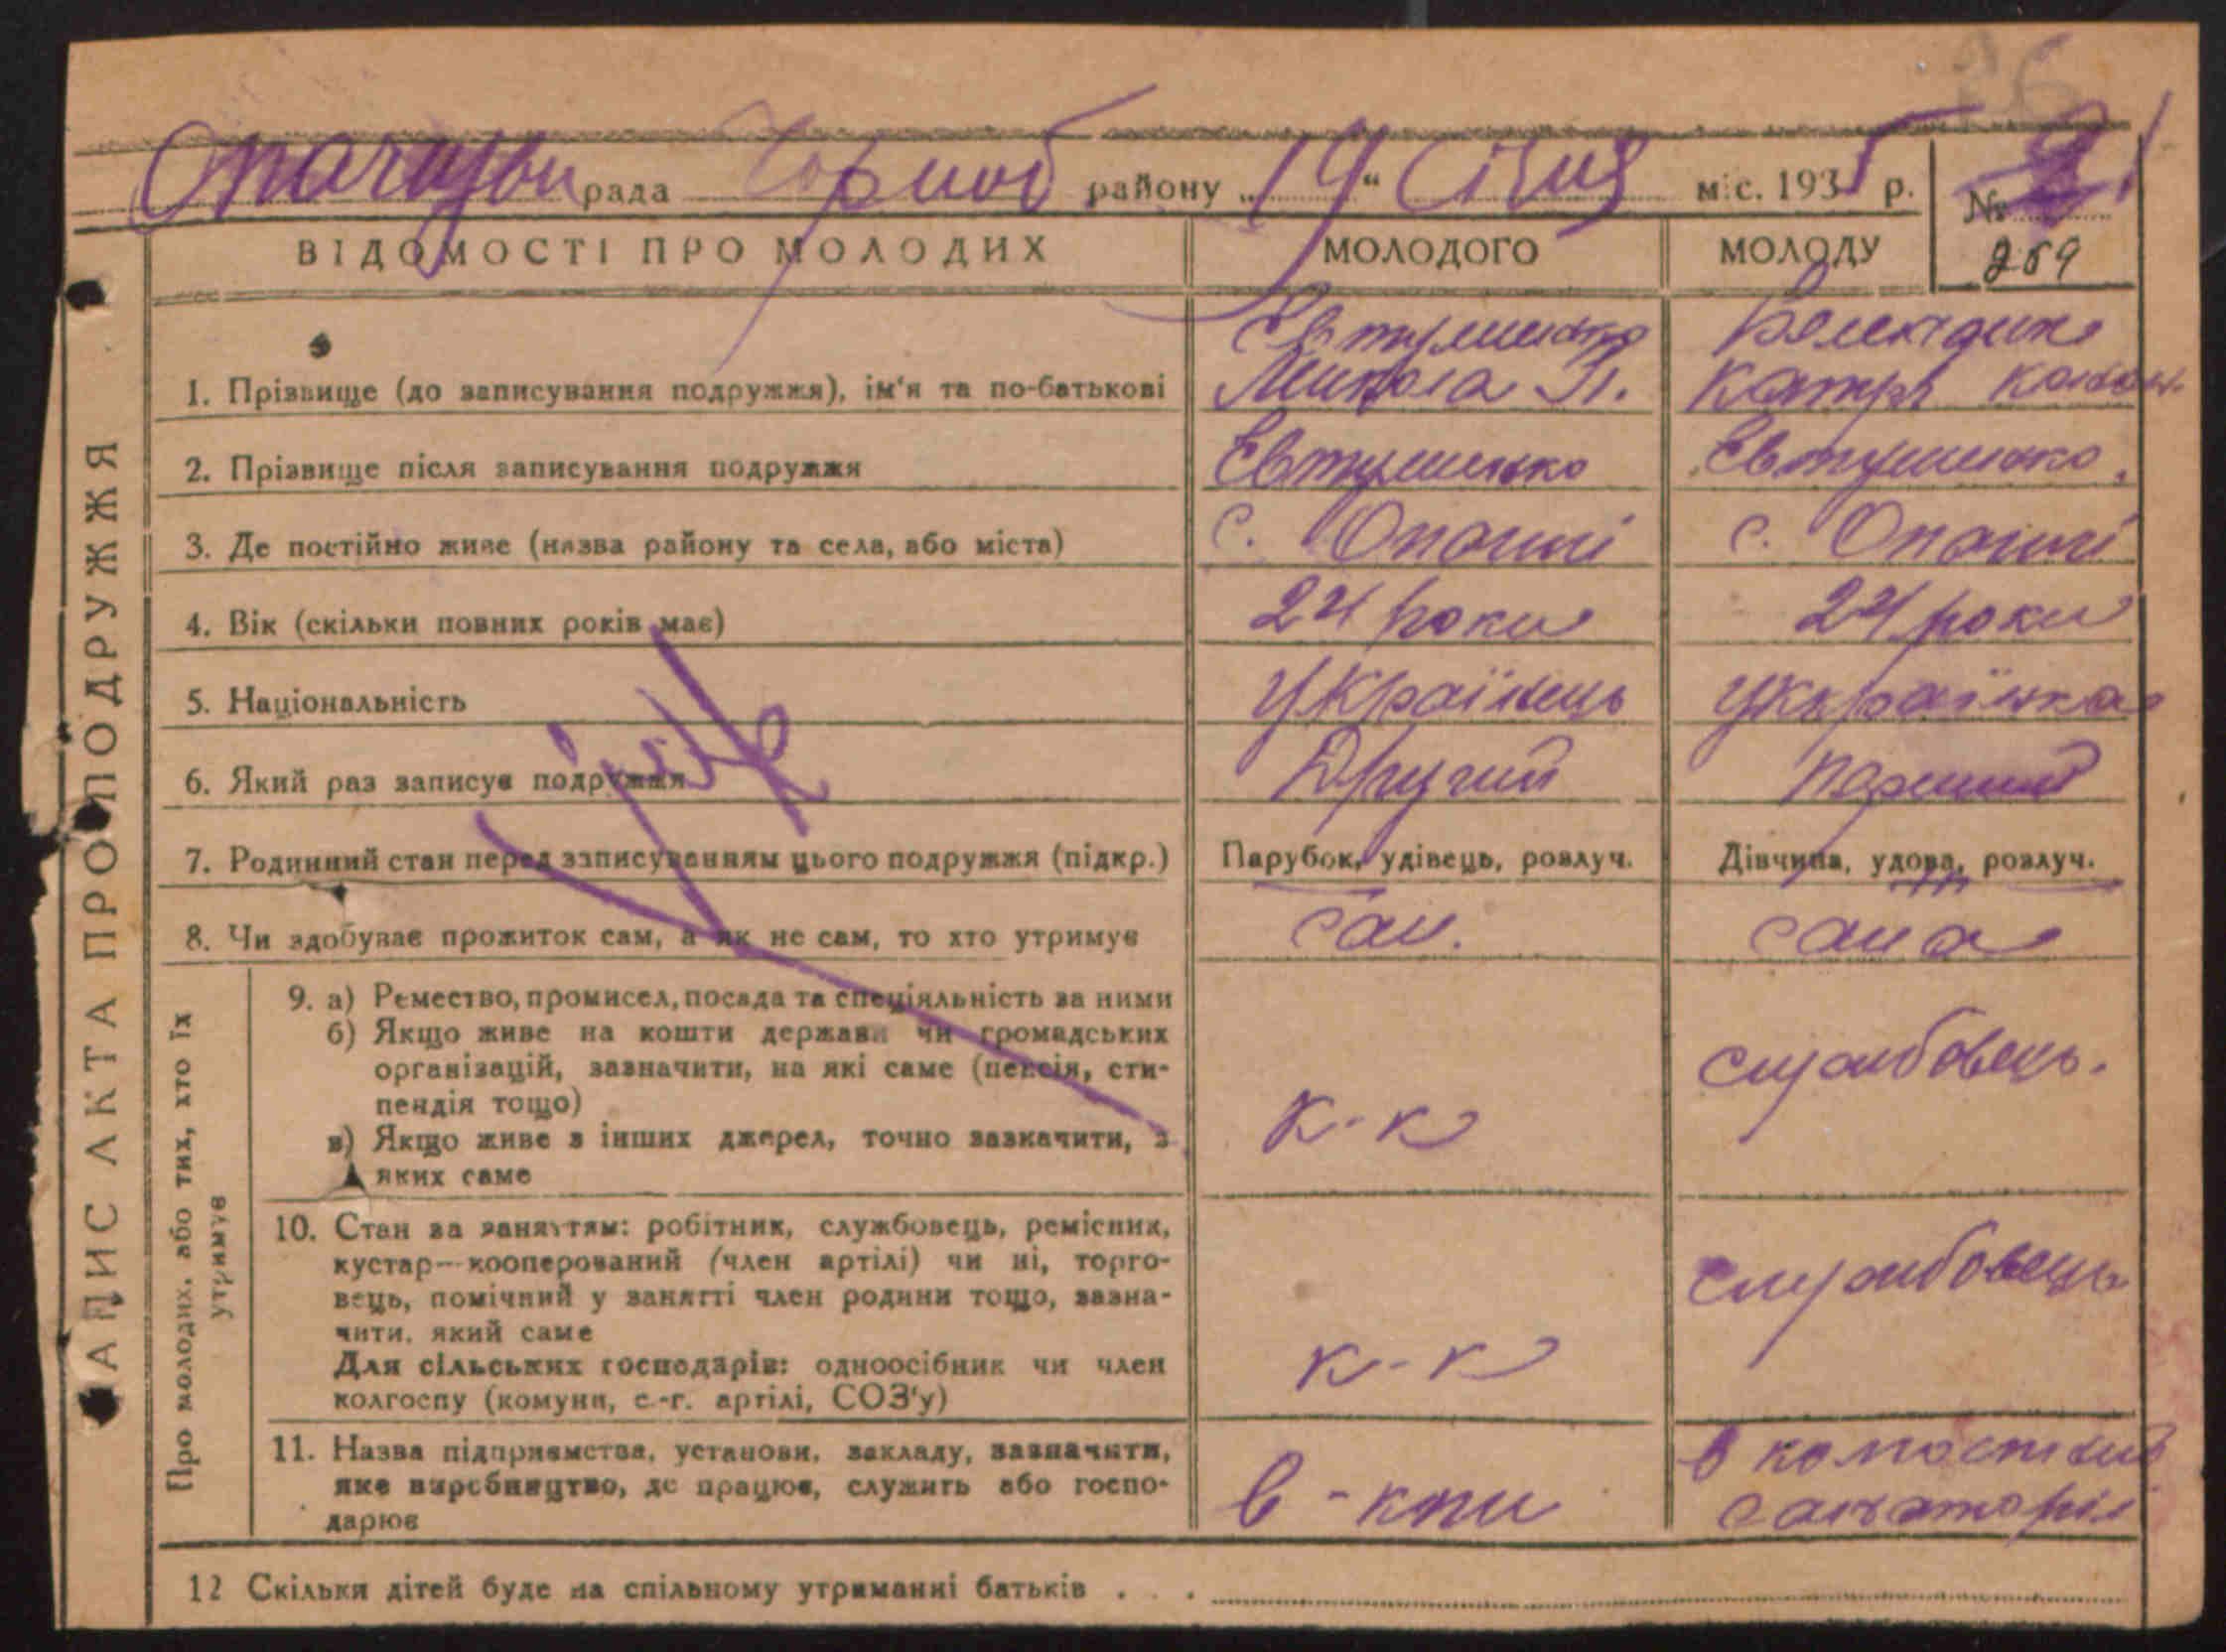 рада Чорноб району „19“ Січня міс. 1935 р.
№ 
259
ВІДОМОСТІ ПРО МОЛОДИХ МОЛОДОГО МОЛОДУ
1. Прізвище (до записування подружжя), ім'я та по-батькові Євтушенко Микола П. Катря
2. Прізвище після записування подружжя Євтушенко Євтушенко.
3. Де постійно живе (назва району та села, або міста) с. Опачичі с. Опачичі
4. Вік (скільки повних років має) 24 роки 24 роки
5. Національність Українець Українка
6. Який раз записує подружжя Другий Перший
7. Родинний стан перед записуванням цього подружжя (підкр.) Парубок, удівець, розлуч. Дівчина, удова, розлуч.
8. Чи здобуває прожиток сам, а як не сам, то хто утримує сам. сама
9. а) Ремество, промисел, посада та спеціяльність за ними
б) Якщо живе на кошти держави чи громадських
організацій, зазначити, на які саме (пенсія, сти-
пендія тощо)
в) Якщо живе з інших джерел, точно зазначити, з
яких саме
к-к службовець.
10. Стан за заняттям: робітник, службовець, ремісник,
кустар—кооперований (член артілі) чи ні, торго-
вець, помічний у занятті член родини тощо, зазна-
чити, який саме
Для сільських господарів: одноосібник чи член
колгоспу (комуни, с.-г. артілі, СОЗ'у)
к-к службовець
11. Назва підприємства, установи, закладу, зазначити,
яке виробництво, де працює, служить або госпо-
дарює
в санаторії
12 Скільки дітей буде на спільному утриманні батьків . . .
ЗАПИС АКТА ПРО ПОДРУЖЖЯ
Про молодих, або тих, хто їх
утримує